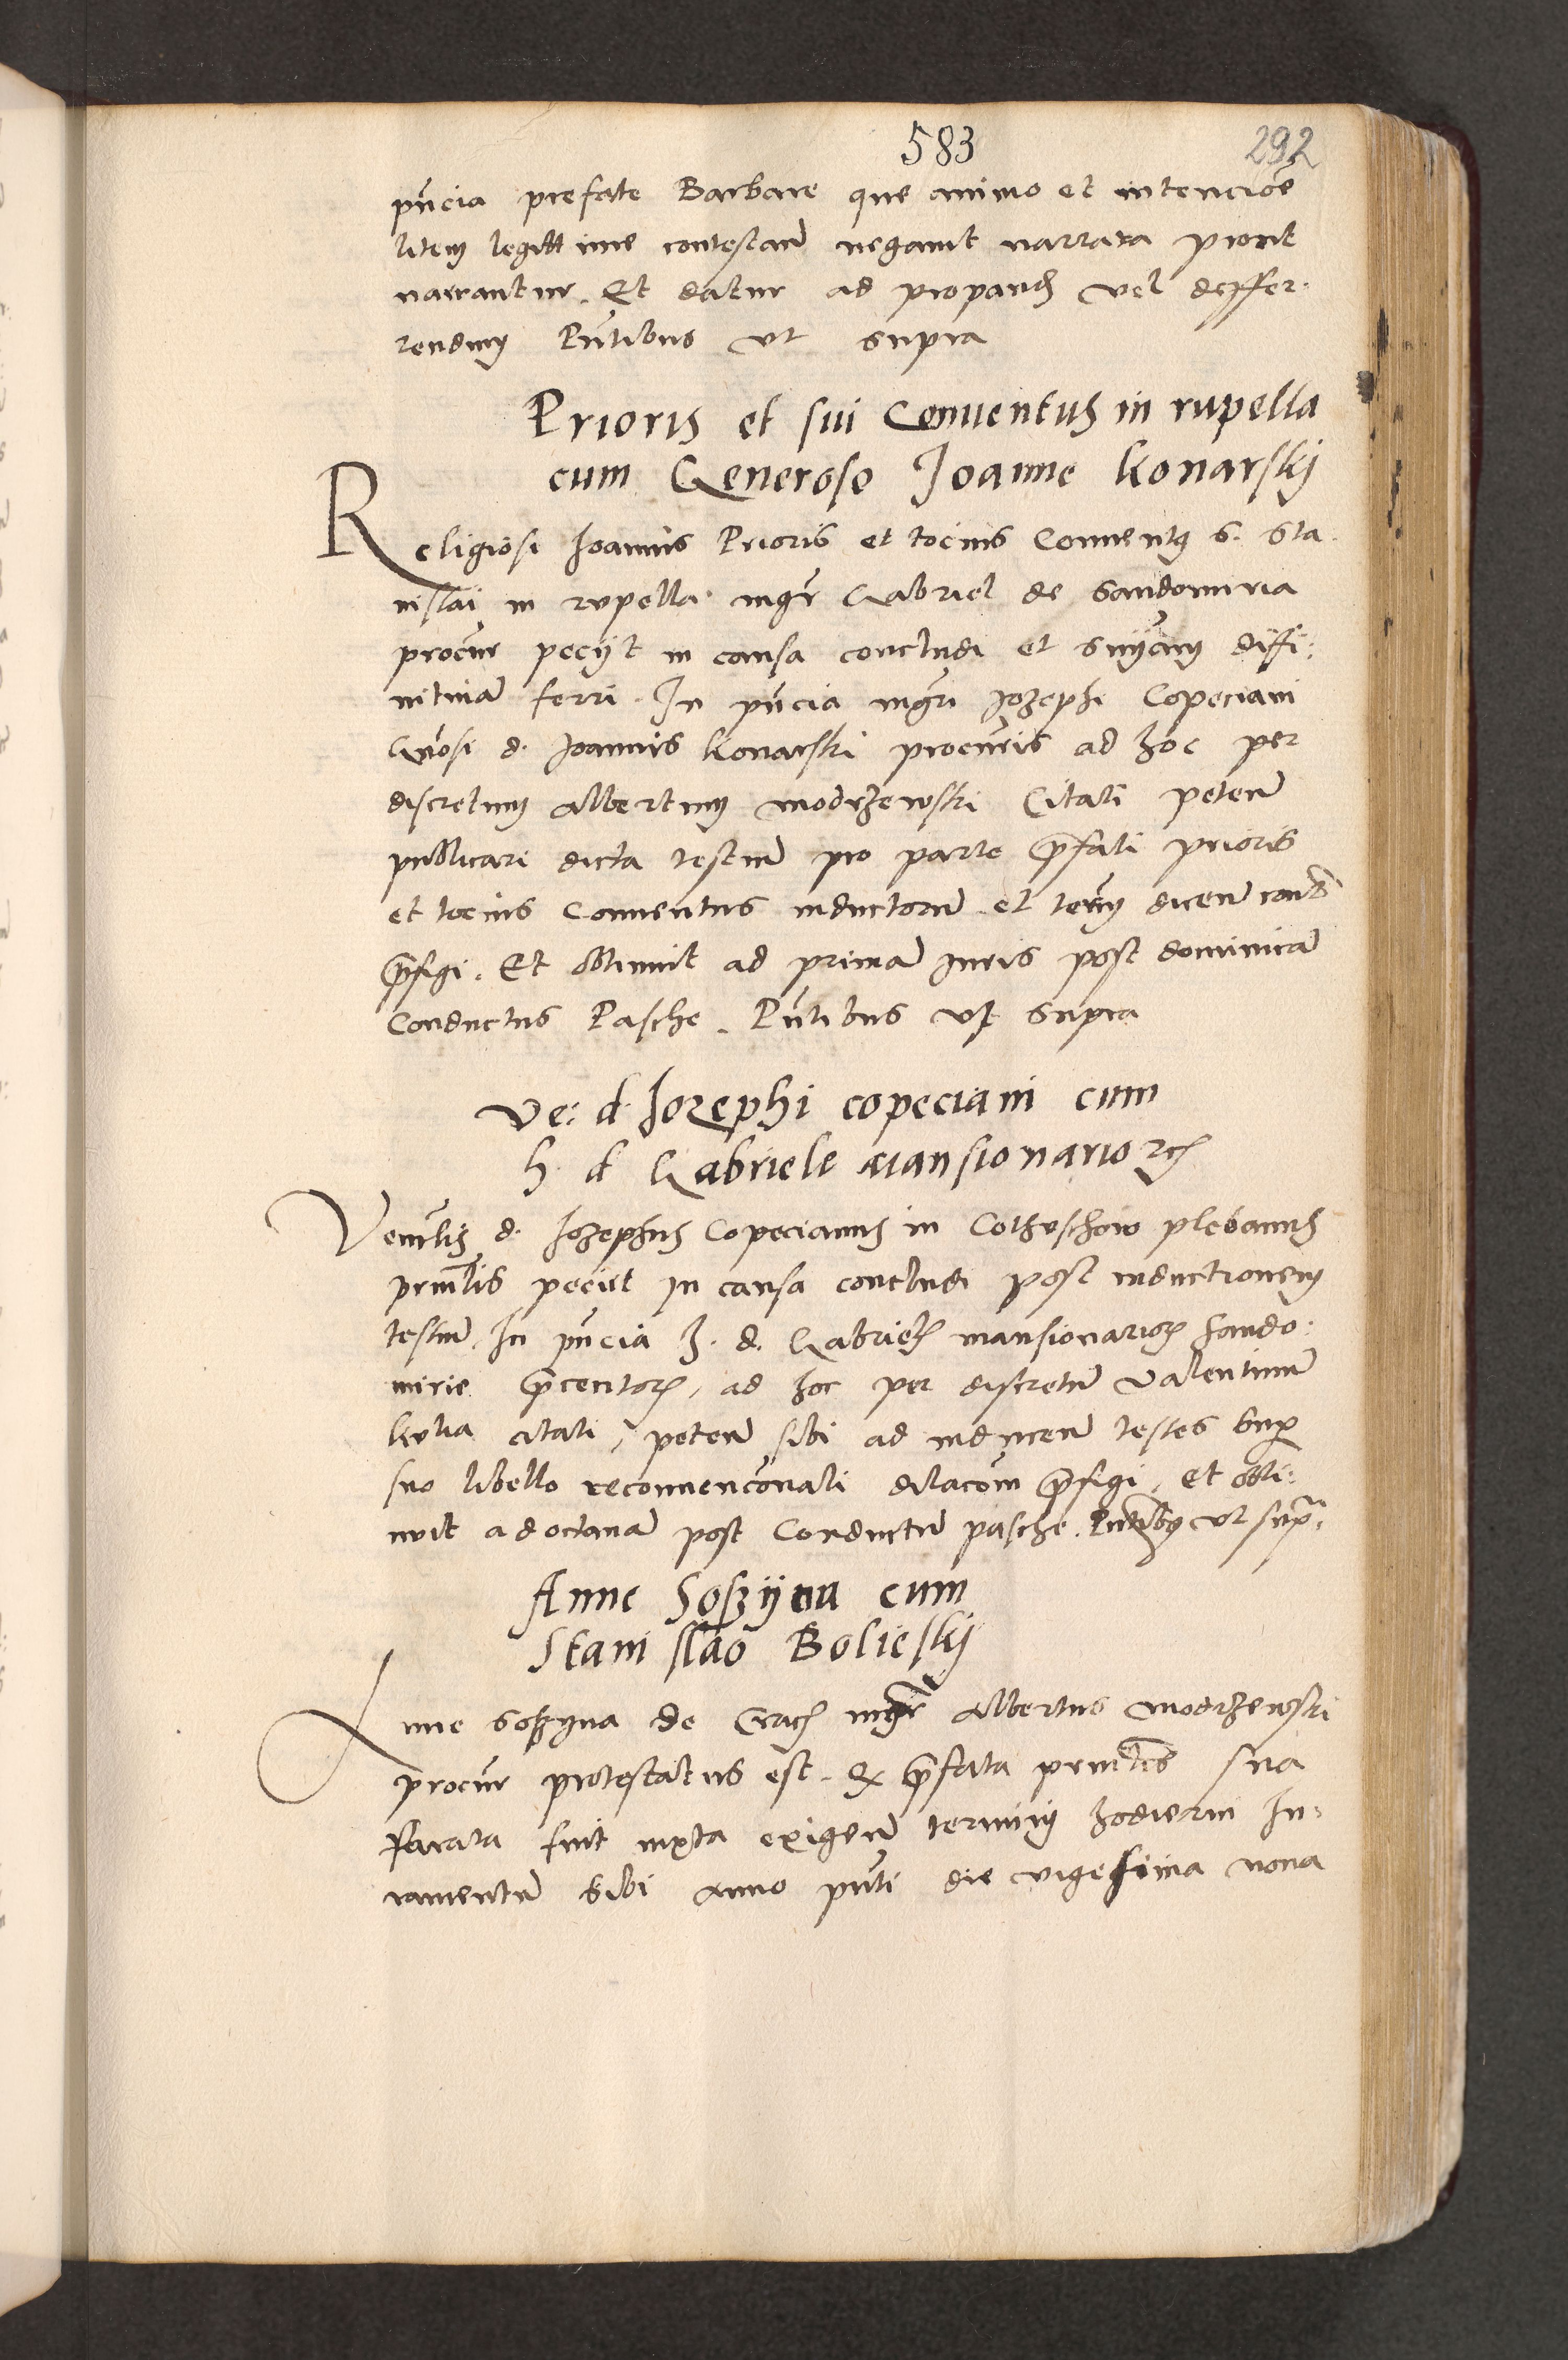 583 292
pn̄cia prefate Barbare que animo et intencioē
litem legittime contestan̄ negavit narrata prout
narrantur. Et datur ad propanđ vel deffer-
rendum Pn̄tibus vt supra
Prioris et sui Conventus in rupella
cum Generoso Joanne Konarskij
Religiosi Joannis Prioris et tocius Conventus S. Sta-
nislai in rupella mgr̄ Gabriel de Sandomiria
procur̄ peciit in causa concludi et sn̄iam diffi-
nitivam ferri. In pn̄cia mgr̄i Jozephi Copeciani
Gn̄osi d. Joannis Konarski procur̄is ad hoc per
discretum Albertum Modrzewski Citati peten̄
publicari dicta testium pro parte p̄fati prioris
et tocius Conventus inductorum et term̄ dicen̄ contra
p̄figi. Et obtinuit ad primam Juris post dominicam
Conductus Pasche. Pn̄tibus vt supra
Ve: d. Jozephi copeciani cum
h. d Gabriele mansionario rc̄
Venerlis d. Jozephus Copecianus in Cotheschow plebanus
prin̄lis peciit in causa concludi post inductionem
testium. In pn̄cia h. d. Gabrieł mansionarioꝝ Sando-
mirie p̄centoris, ad hoc per discretum Valentinum
citati, peten̄ sibi ad inducen̄ testes super
suo libello reconvencōnali dilacōm p̄figi, et obti-
nuit ad octavam post Conductum pasche. Pn̄tibus vt supra.
Anne Soszyna cum
Stanislao Bolieskij
Anne Soszyna de Crac̄ mgr̄ Albertus Modrzewski
procur̄ protestatus est. Q p̄fata prin̄lis sua
parata fuit iuxta exigen̄ termini hodierni Ju-
ramentum sibi Anno pn̄ti die vigesima nona